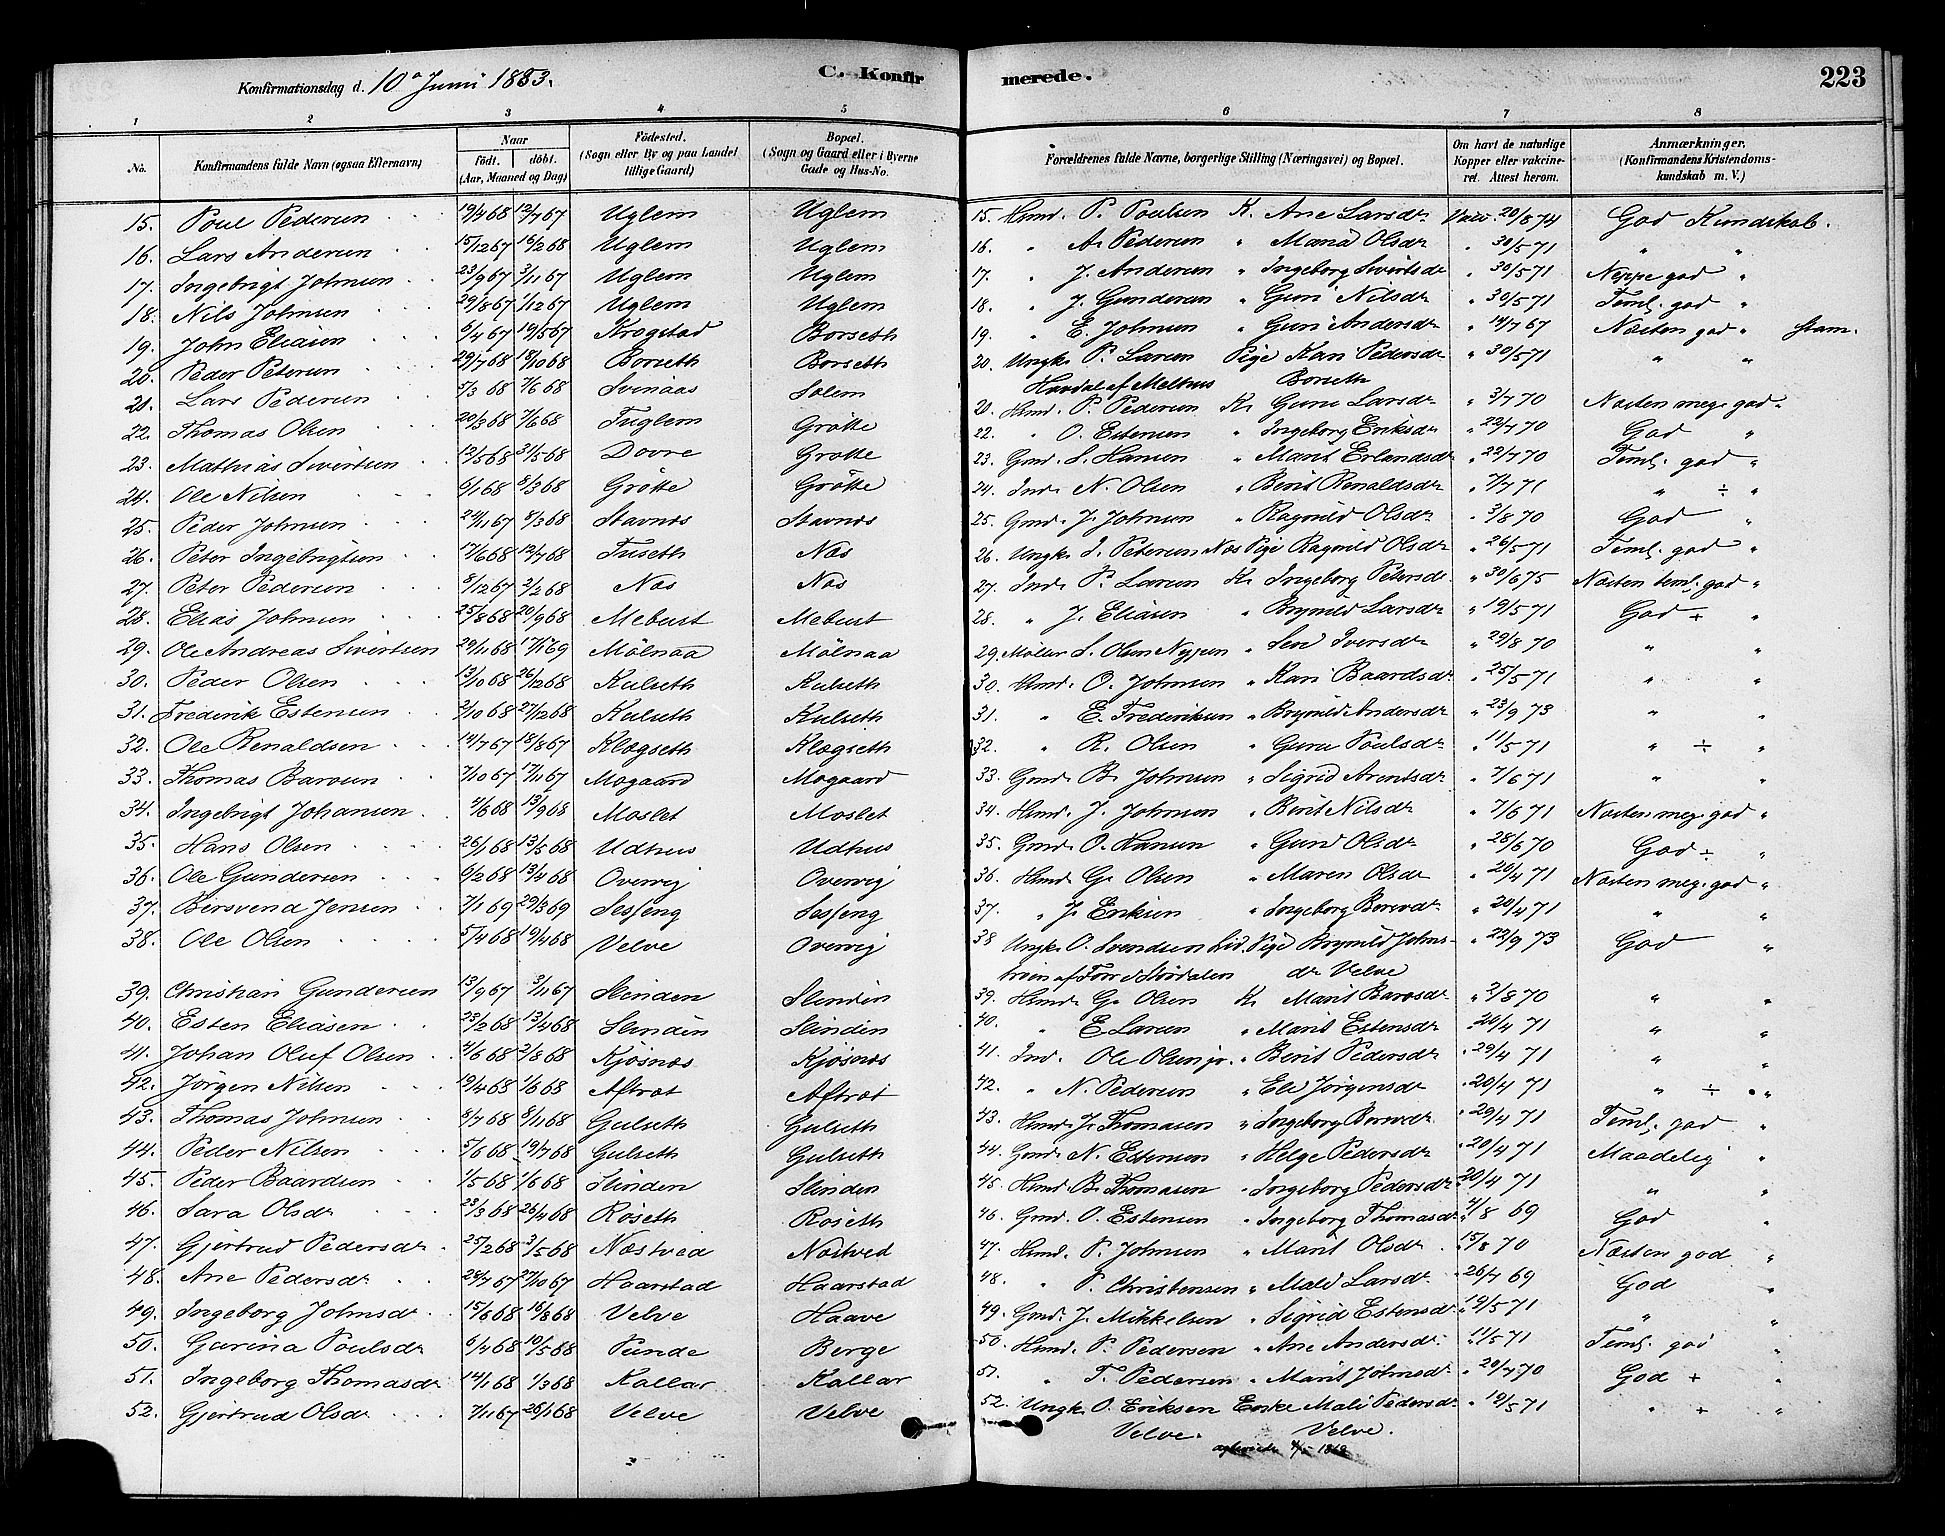 Konfirmationsdag d. 10de Juni 1883.
C. Konfirmerede.
223
1 2 3 4 5 6 7 8
No. Konfirmandens fulde Navn (ogsaa Efternavn) Naar födt. döbt. (Aar, Maaned og Dag) Födested. (Sogn eller By og paa Landet tillige Gaard) Bopæl. (Sogn og Gaard eller i Byerne Gade og Hus-No. Forældrenes fulde Navne, borgerlige Stilling (Næringsvei) og Bopæl. Om havt de naturlige Kopper eller vakcineret. Attest herom. Anmærkninger. (Konfirmandens Kristendomskundskab m. V.)
15. Poul Pedersen 19/4 68 12/7 67 Uglem Uglem 15. Hmd. P. Poulsen K. Ane Larsdr Vakc. 20/8 74 God Kundskab.
16. Lars Andersen 15/12 67 16/2 68 Uglem Uglem 16. " A. Pedersen " Maria Olsdr " 30/5 71 " "
17. Ingebrigt Johnsen 23/9 67 3/11 67 Uglem Uglem 17. " J. Andersen " Ingeborg Sivertsdr " 30/5 71 Neppe god "
18. Nils Johnsen 29/8 67 1/12 67 Uglem Uglem 18. " J. Gundersen " Guri Nilsdr " 30/5 71 Teml. god "
19. John Eliasen 6/4 67 19/5 67 Krogstad Borseth 19. " E. Johnsen " Guri Andersdr " 14/7 67 Næsten god " Stam.
20. Peder Petersen 29/7 68 18/10 68 Borseth Borseth 20. Ungk. P. Larsen Pige Kari Pedersdr " 30/5 71 " "
Hovdal af Melhus Borseth
21. Lars Pedersen 5/3 68 7/6 68 Svinaas Solem 20. Hmd. P. Pedersen K. Guru Larsdr " 3/7 70 Næsten meg. god "
22. Thomas Olsen 20/3 68 7/6 68 Fuglem Grötte 22. " O. Estensen " Ingeborg Eriksdr " 22/7 70 God "
23. Mathias Sivertsen 12/5 68 31/5 68 Dovre Grötte 23. Gmd. S. Hansen " Marit Erlandsdr " 22/7 70 Teml. god "
24. Ole Nilsen 6/1 68 8/3 68 Grötte Grötte 24. Ind. N. Olsen " Berit Renaldsdr " 7/7 71 " ÷ "
25. Peder Johnsen 24/11 67 8/3 68 Stavnes Stavnes 25. Gmd. J. Johnsen " Ragnild Olsdr " 3/8 70 God "
26. Peter Ingebrigtsen 17/6 68 12/7 68 Tuseth Næs 26. Ungk. I. Petersen Næs Pige Ragnild Olsdr " 26/5 71 Teml. god "
27. Peter Pedersen 8/12 67 2/2 68 Næs Næs 27. Ind. P. Larsen K. Ingeborg Petersdr " 30/6 75 Næsten teml. god "
28. Elias Johnsen 25/8 68 20/9 68 Mebust Mebust 28. " J. Eliasen " Brynild Larsdr " 19/5 71 God + "
29. Ole Andreas Sivertsen 29/11 68 17/1 69 Mölnaa Mölnaa 29. Möller S. Olsen Nypen " Seri Iversdr " 29/8 70 " "
30. Peder Olsen 13/10 68 26/12 68 Kulseth Kulseth 30. Hmd. O. Johnsen " Kari Baardsdr " 25/5 71 " "
31. Frederik Estensen 3/10 68 27/12 68 Kulseth Kulseth 31. " E. Frederiksen " Brynild Andersdr " 23/9 73 " "
32. Ole Renaldsen 14/7 67 18/8 67 Klegseth Klegseth 32. " R. Olsen " Guru Poulsdr " 11/5 71 " ÷ "
33. Thomas Baroen 7/10 67 17/11 67 Mogaard Mogaard 33. Gmd. B. Johnsen " Sigrid Arentsdr " 7/6 71 " "
34. Ingebrigt Johansen 2/6 68 13/9 68 Moslet Moslet 34. Hmd. J. Johnsen " Berit Nilsdr " 7/6 71 Næsten meg. god "
35. Hans Olsen 26/1 68 13/5 68 Udhus Udhus 35. Gmd. O. Hansen " Guru Olsdr " 28/6 70 God ÷ "
36. Ole Gundersen 6/2 68 13/4 68 Overvig Overvig 36. Hmd. G. Olsen " Maren Olsdr " 20/4 71 Næsten meg. god "
37. Bersvend Jensen 7/1 69 29/3 69 Sesseng Sesseng 37. " J. Eriksen " Ingeborg Borevdr " 20/4 71 " "
38. Ole Olsen 5/4 68 19/4 68 Velve Overvig 38 Ungk. O. Svendsen Pige Brynild Johns- " 22/9 73 God "
dr Velve
39. Christian Gundersen 13/9 67 3/11 67 Slinden Slinden 39. Hmd. G. Olsen K. Marit Barosdr " 2/8 70 " "
40. Esten Eliasen 23/2 68 13/4 68 Slinden Slinden 40. " E. Larsen " Marit Estensdr " 20/4 71 " "
41. Johan Oluf Olsen 4/6 68 2/8 68 Kjösnæs Kjösnæs 41. Ind. Ole Olsen jr. " Berit Pedersdr " 29/4 71 " "
42. Jörgen Nilsen 19/4 68 1/6 68 Aftret Aftret 42. " N. Pedersen " Eli Jörgensdr " 20/4 71 " ÷ "
43. Thomas Johnsen 8/7 68 8/11 68 Gulseth Gulseth 43. Hmd. J. Thomasen " Ingeborg Borevdr " 29/4 71 Teml. god "
44. Peder Nilsen 5/6 68 19/7 68 Gulseth Gulseth 44. Gmd. N. Estensen " Helge Pedersdr " 20/4 71 Maadelig "
45. Peder Baardsen 1/5 68 1/6 68 Slinden Slinden 45. Hmd. B. Thomasen " Ingeborg Pedersdr " 20/4 71 " "
46. Sara Olsdr 23/3 68 26/4 68 Röseth Röseth 46. Gmd. O. Estensen " Ingeborg Thomasdr " 4/8 69 God "
47. Gjertrud Pedersdr 25/2 68 3/5 68 Næstved Næstved 47. Hmd. P. Johnsen " Marit Olsdr " 15/8 70 Næsten god "
48. Ane Pedersdr 28/7 67 27/10 67 Haarstad Haarstad 48. " P. Christensen " Mali Larsdr " 26/7 69 God "
49. Ingeborg Johnsdr 15/6 68 16/8 68 Velve Haave 49. Gmd. J. Mikkelsen " Sigrid Estensdr " 19/5 71 " "
50. Gurina Poulsdr 6/4 68 10/5 68 Punde Berge 50. Hmd. P. Pedersen " Ane Andersdr " 11/5 71 Teml. god "
51. Ingeborg Thomasdr 14/1 68 1/3 68 Kallar Kallar 51. " T. Pedersen " Marit Johnsdr " 20/7 70 God + "
52. Gjertrud Olsdr 7/11 67 26/1 68 Velve Velve 52. Ungk. O. Eriksen Enke Mali Pedersdr " 19/5 71 " + "
Velve. Velve.
1868